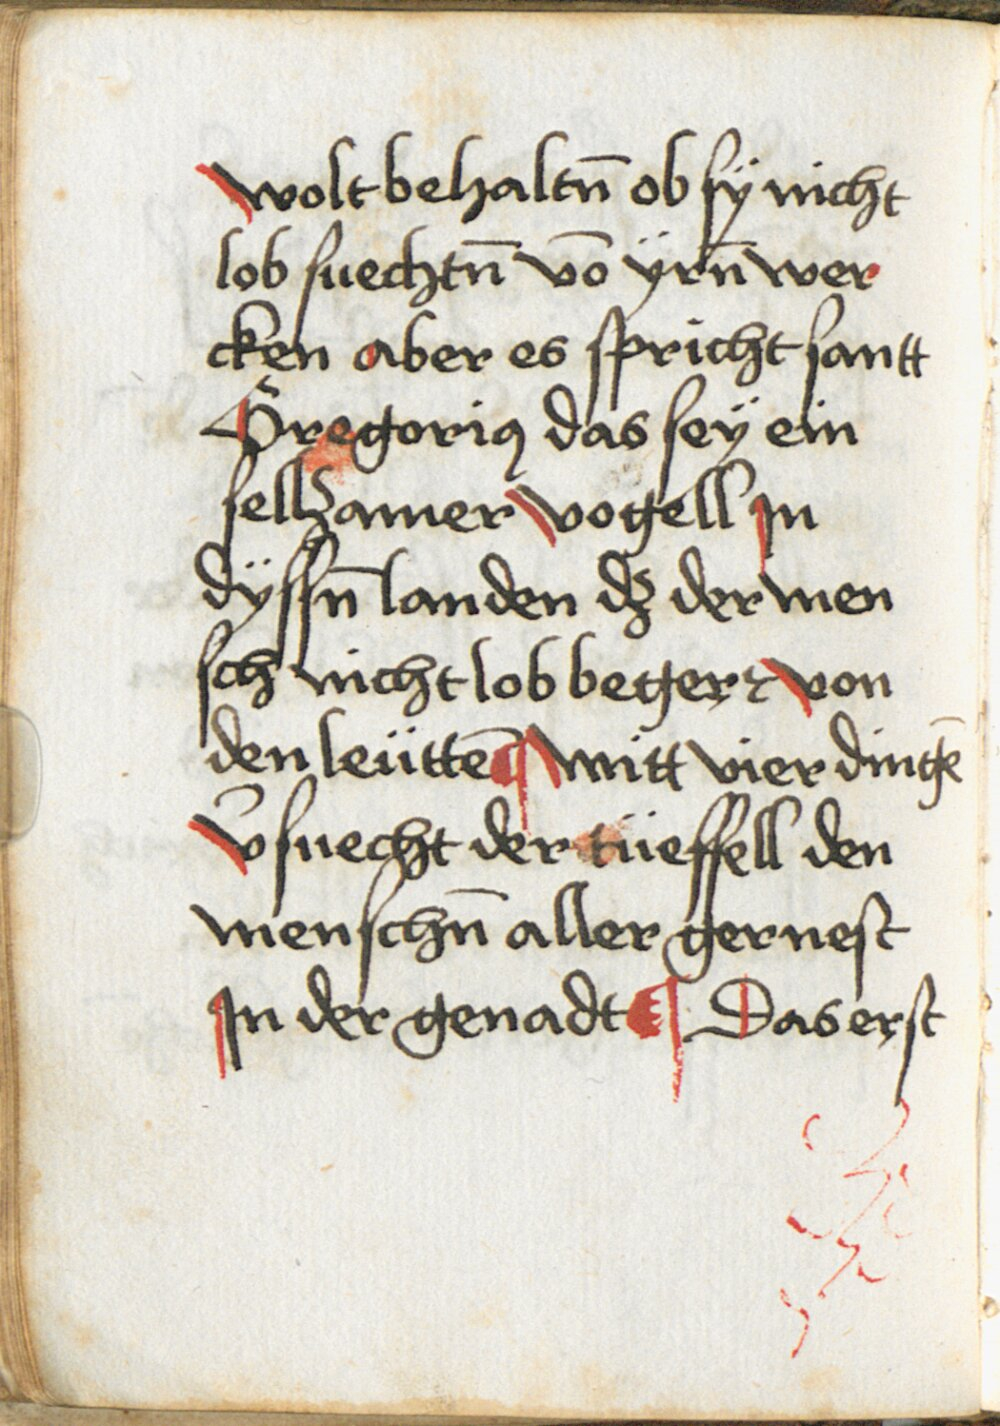 wolt behaltn̄ ob sÿ nicht
lob suechtn̄ vō ÿrn̄ wer
cken aber es spricht santt
Gregoriꝯ das seÿ ein
seltzamer vogell Jn
dÿssn̄ landen dz der men
sch nicht lob begert von
den leüttē ¶ Mitt vier dingē
v̄suecht der tüeffell den
menschn̄ aller gernest
Jn der genadt ¶ Das erst